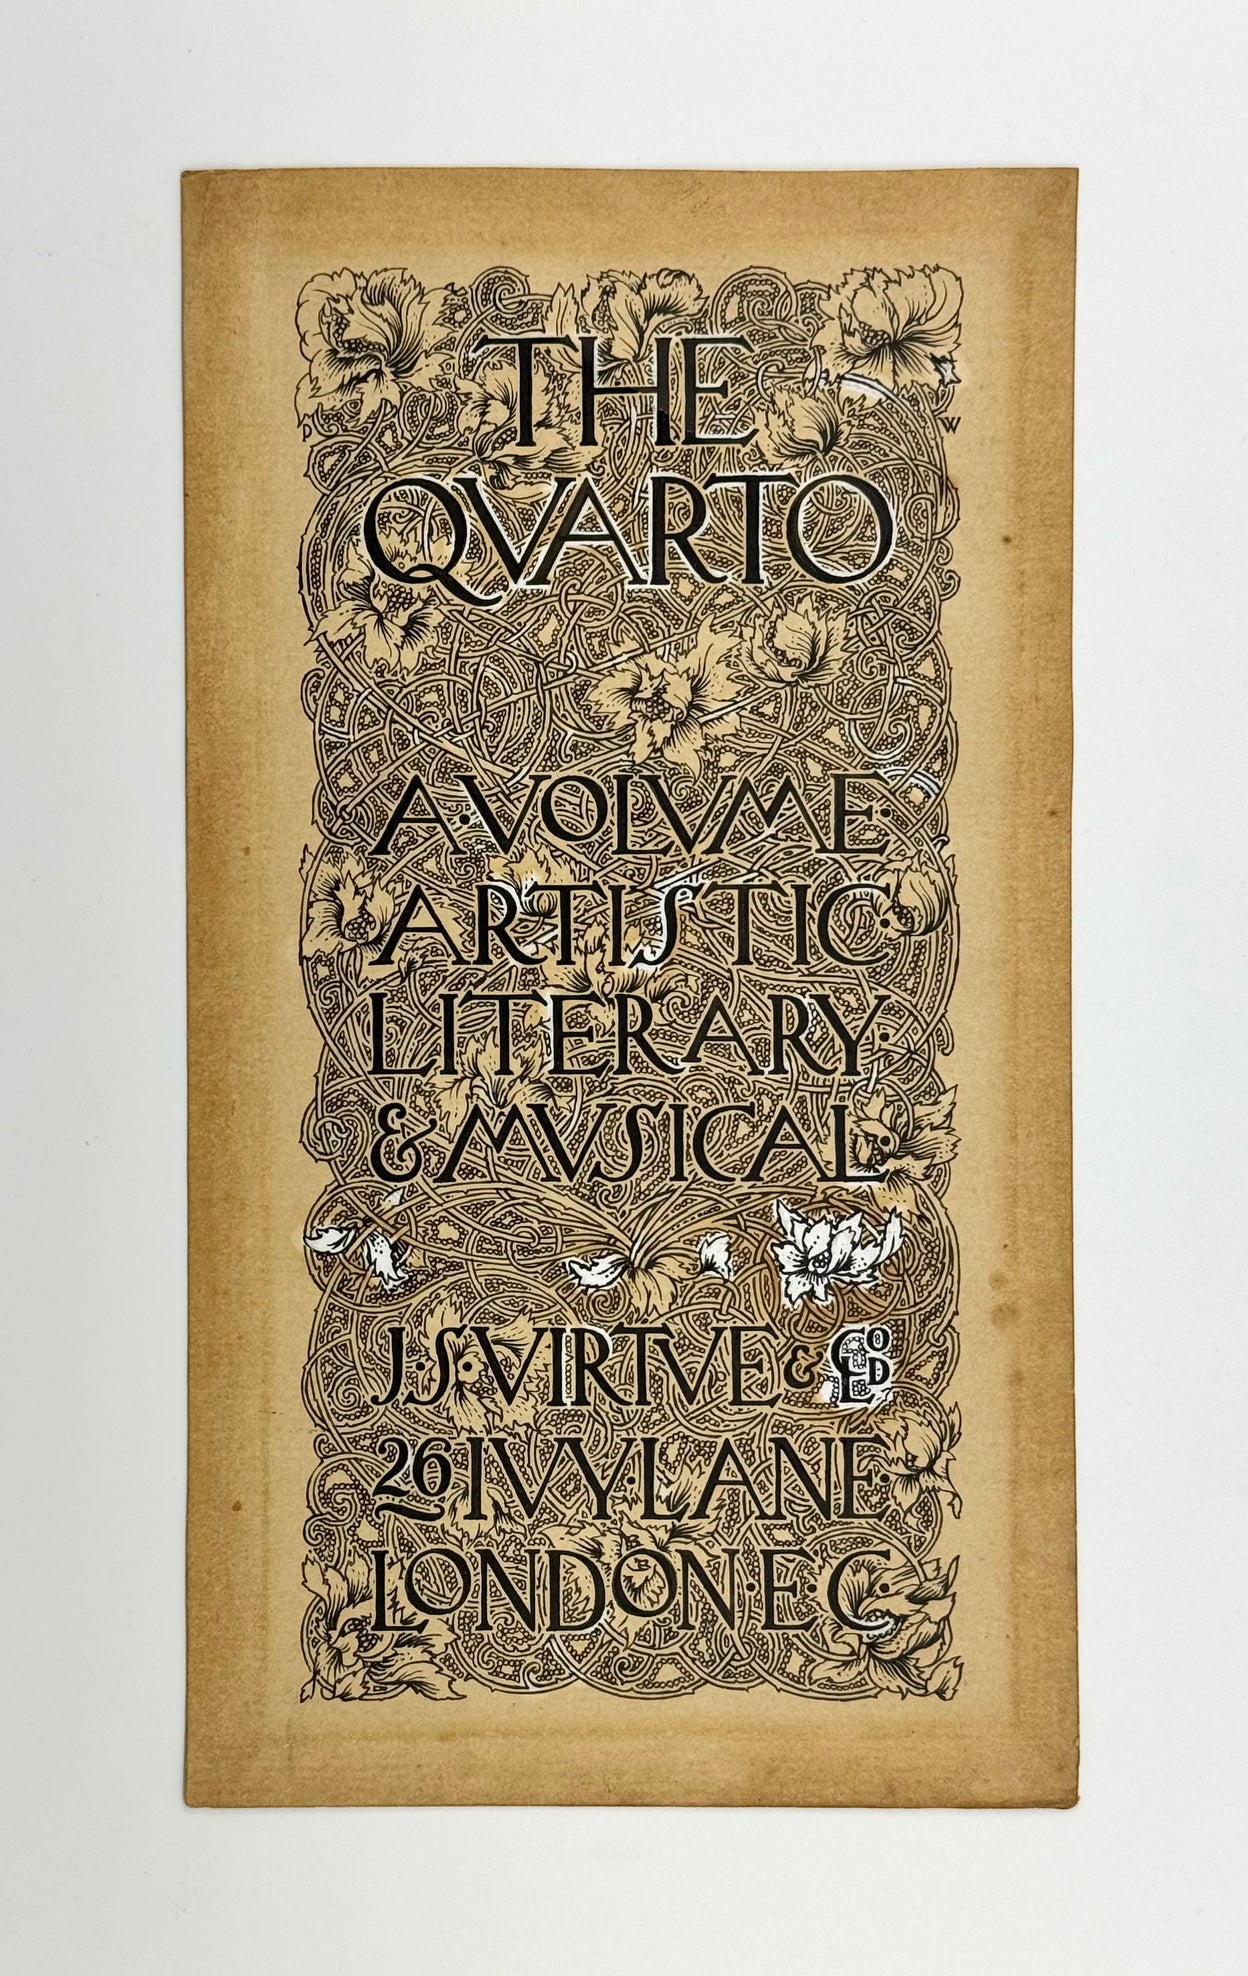 THE
QVARTO
P W
A·VOLVME·
ARTISTIC·
LITERARY·
& MVSICAL
J·S·VIRTVE & Co LD
26 IVY·LANE·
LONDON·E·C·